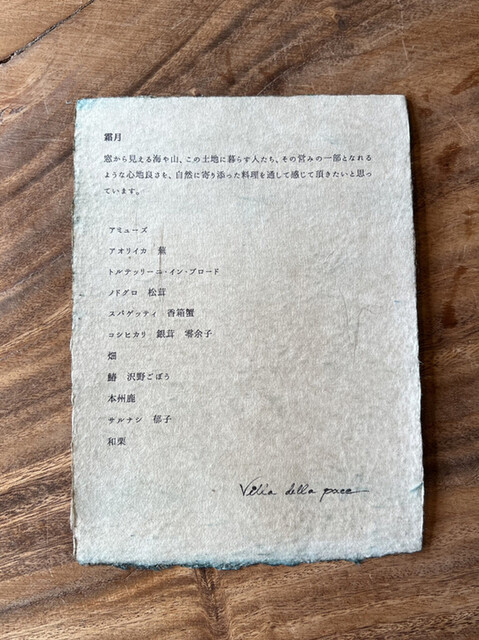 霜月
窓から見える海や山、この土地に暮らす人たち、その営みの一部となれる
ような心地良さを、自然に寄り添った料理を通して感じて頂きたいと思っ
ています。
アミューズ
アオリイカ　蕪
トルテッリーニ・イン・ブロード
ノドグロ　松茸
スパゲッティ　香箱蟹
コシヒカリ　銀茸　零余子
畑
鰆　沢野ごぼう
本州鹿
サルナシ　郁子
和栗
Villa della pace